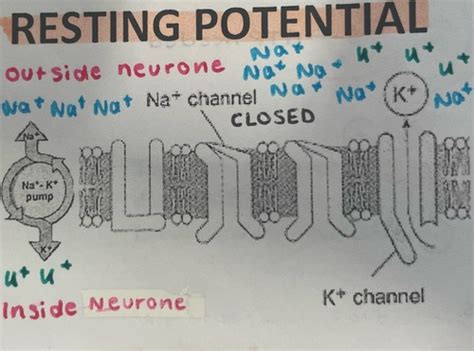 RESTING POTENTIAL
Outside neurone
Na+ K+ K+
Na+ Na+ K+
Na+ Na+ Na+ Na+ channel Na+ Na+ K+ Na+
CLOSED
Na+
Na+-K+
pump
K+
K+ K+
Inside Neurone
K+ channel